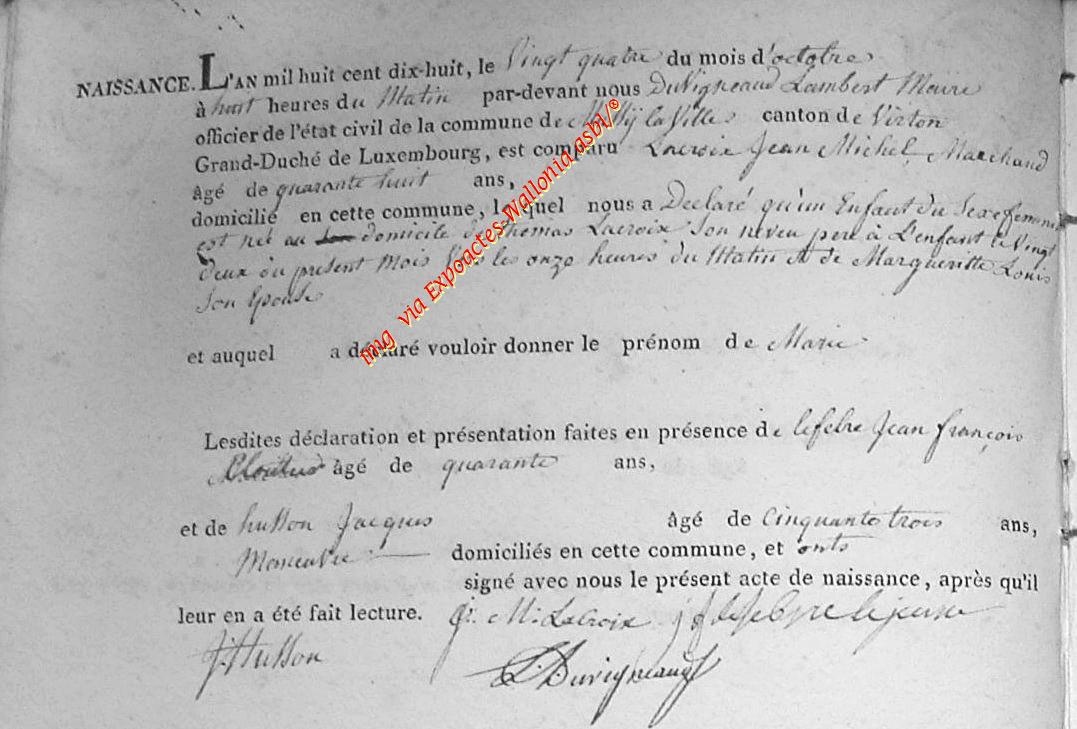 NAISSANCE. L'AN mil huit cent dix-huit, le Vingt quatre du mois d'octobre
à huit heures du Matin par-devant nous Duvigneaud Lambert Maire
officier de l'état civil de la commune de la Ville canton de Virton
Grand-Duché de Luxembourg, est comparu Lacroix Jean Michel Marchand
âgé de quarante huit ans,
domicilié en cette commune, lequel nous a Declaré qu'un Enfant du Sexe femini
est né au domicile de Thomas Lacroix Son neveu pere à L'enfant le Vingt
deux du present mois les onze heures du Matin et de Margueritte Louis
Son Epouse
et auquel a déclaré vouloir donner le prénom de Marie
Lesdites déclaration et présentation faites en présence de lefebre Jean françois
Cloutier âgé de quarante ans,
et de husson Jacques âgé de Cinquante trois ans,
domiciliés en cette commune, et onts
signé avec nous le présent acte de naissance, après qu'il
leur en a été fait lecture. J. M. Lacroix j f lefebvre lejeune
J. Husson L. Duvigneaud
img via Expoactes-Wallonia.asbl/®